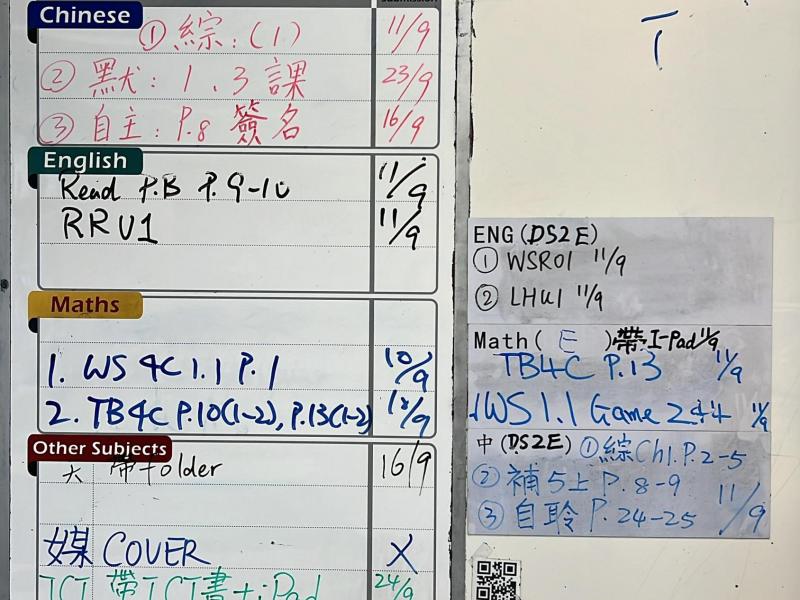 submission
Chinese
① 綜:(1) 11/9
② 默: 1、3 課 23/9
③ 自主: P.8 簽名 16/9
English
Read P.B P.9-10 11/9
RRU1 11/9
Maths
1. WS 4C 1.1 P.1 10/9
2. TB4C P.10(1-2), P.13(1-2) 12/9
Other Subjects
帶folder 16/9
媒 COVER X
ICT 帶ICT書+iPad 24/9
ENG(DS2E)
① WSR01 11/9
② LHU1 11/9
Math( E )帶I-Pad 11/9
TB4C P.13 11/9
WS 1.1 Game 2 11/9
中(DS2E) ①綜Ch1.P.2-5
② 補5上 P.8-9
③ 自聆 P.24-25 11/9